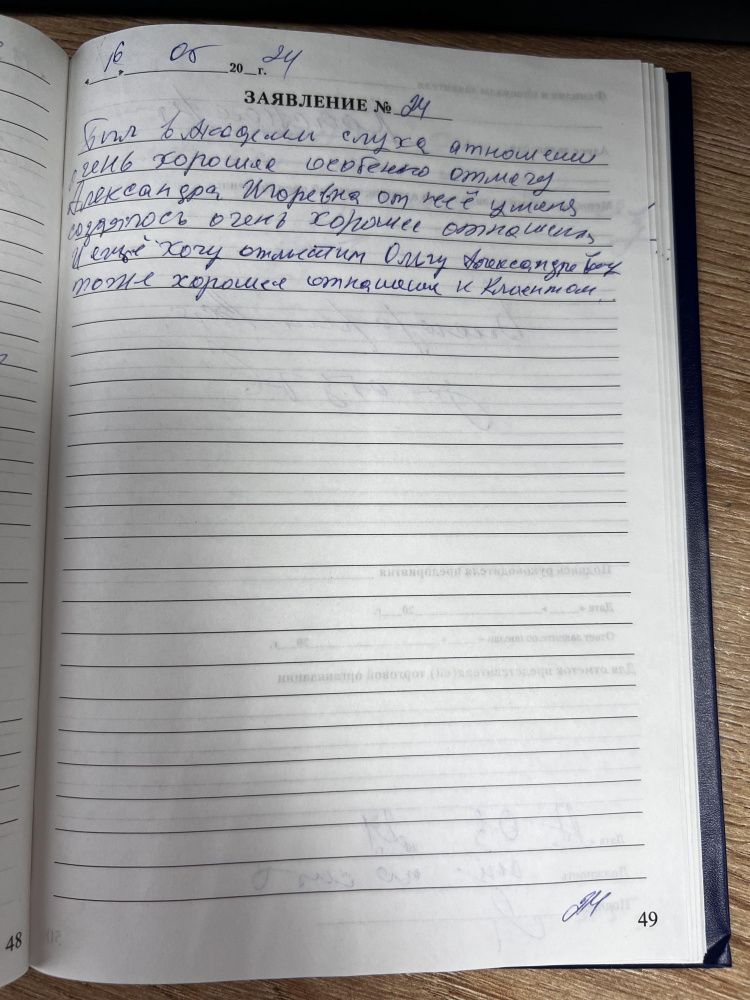 « 16 » 05 20 г. 24
ЗАЯВЛЕНИЕ № 24
Был в Академи слуха атношении
очень хорошяе особенно отмечу
Александра Игоревна от неё у меня
создалось очень хорошее отнашения
И ещё хочу отметит Ольгу Александровну
тоже хорошея отнашения к Клиентом.
24
49
48